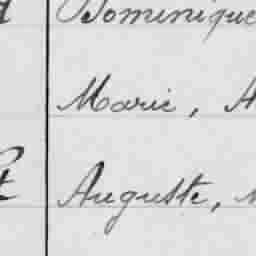 Dominique
Marie, A
Auguste,